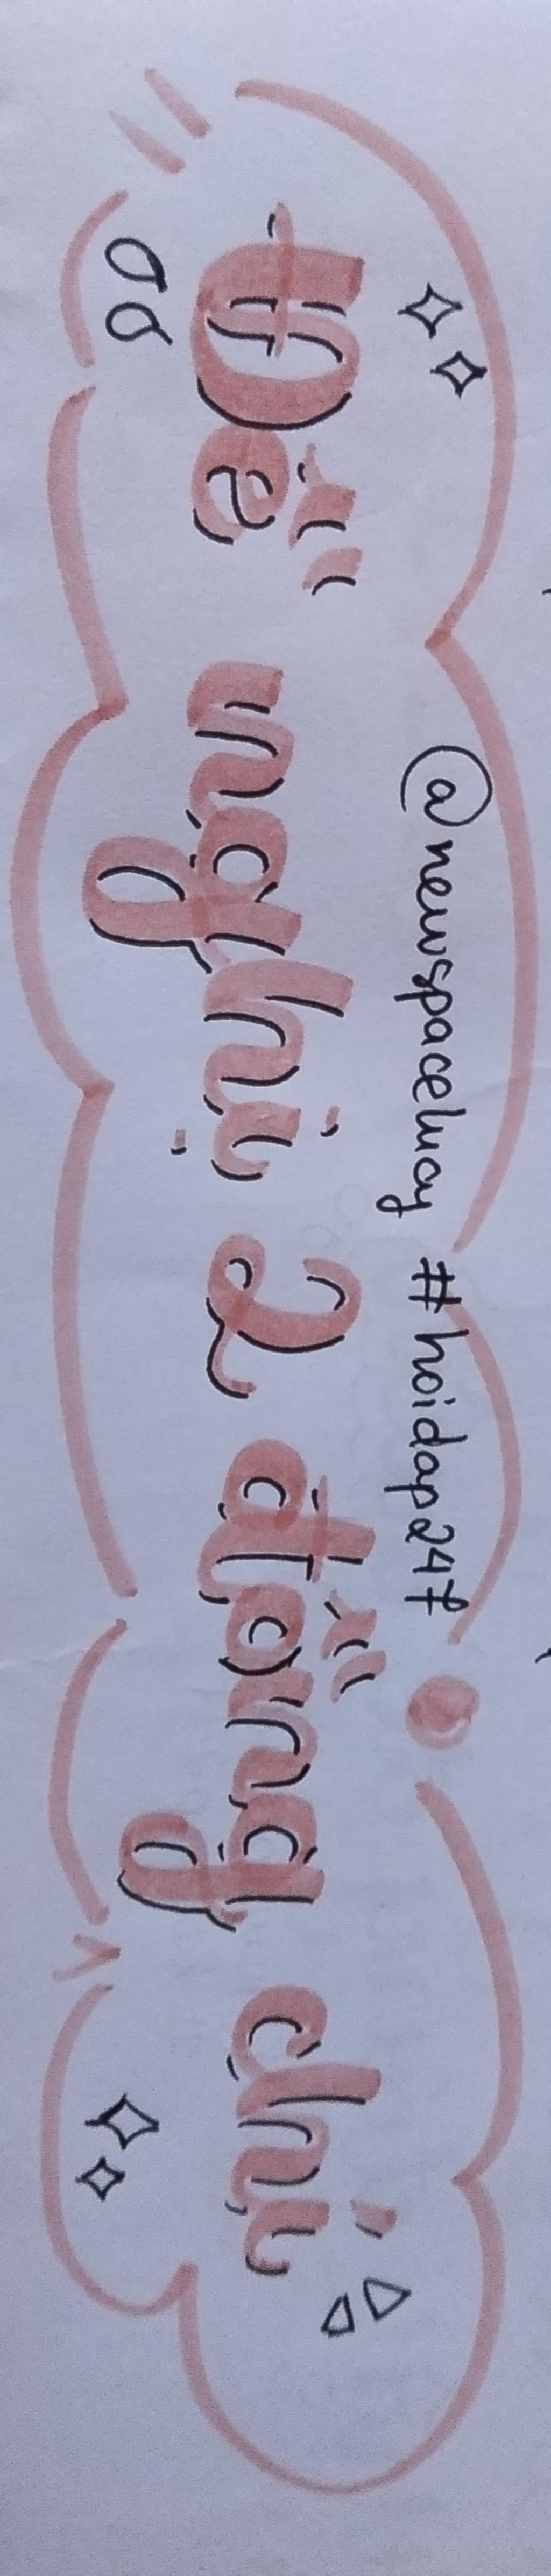 @newspacelucy #hoidap247
Đề nghị 2 đồng chí